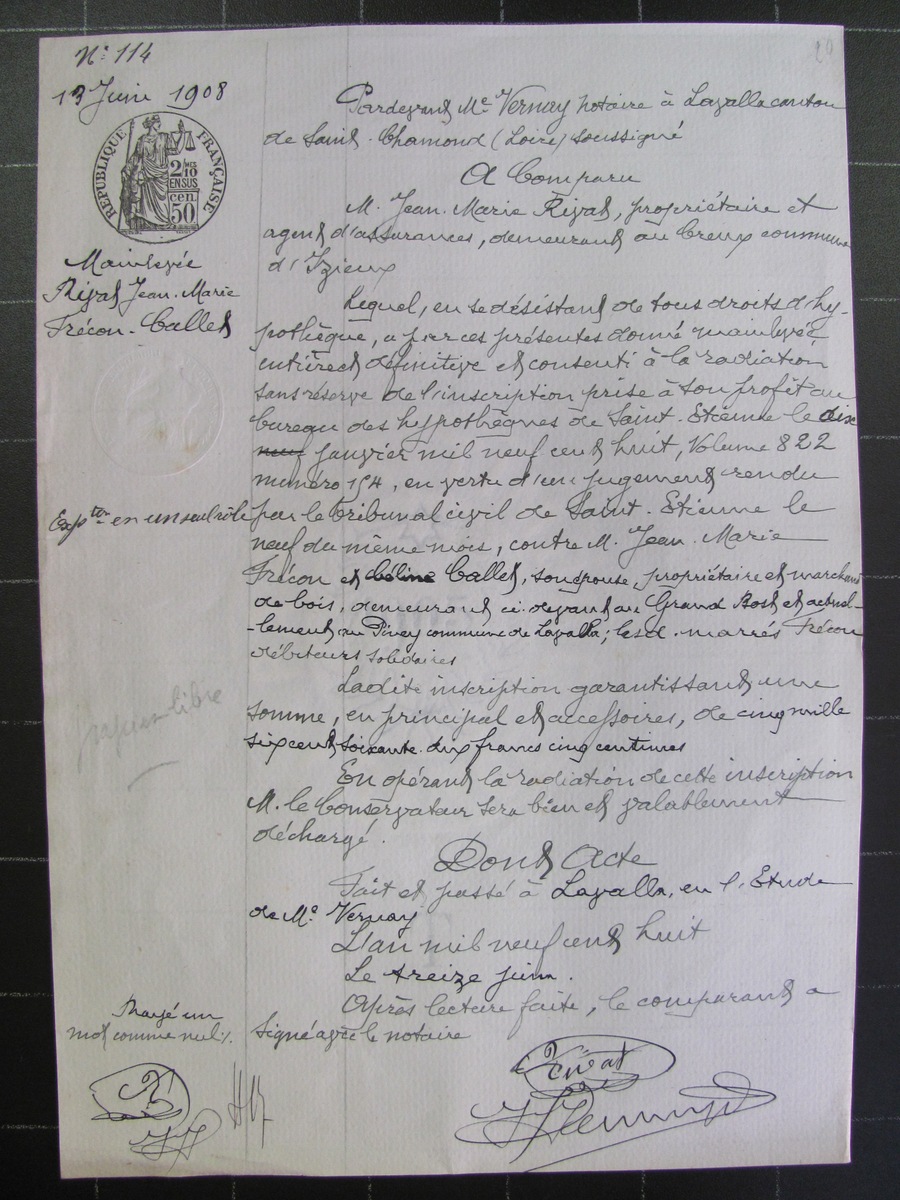 N° 114
13 Juin 1908
RÉPUBLIQUE FRANÇAISE
2/10 MES
EN SUS
50 cen
Mainlevée
Rivat Jean-Marie
Frécon-Callet
Expton en un seul rôle
papier libre
Rayé un
mot comme nul
Pardevant Me Vernay notaire à Lavalla canton
de Saint-Chamond (Loire) soussigné
A Comparu
M. Jean-Marie Rivat, propriétaire et
agent d'assurances, demeurant au Creux commune
d'Izieux
Lequel, en se désistant de tous droits d'hy-
pothèque, a par ces présentes donné mainlevée,
entière et définitive et consenti à la radiation
sans réserve de l'inscription prise à son profit au
bureau des hypothèques de Saint-Etienne le dix
neuf janvier mil neuf cent huit, Volume 822
numéro 154, en vertu d'un jugement rendu
par le tribunal civil de Saint-Etienne le
neuf du même mois, contre M. Jean-Marie
Frécon et Céline Callet, son épouse, propriétaire et marchand
de bois, demeurant ci-devant au Grand Bost et actuel-
-lement au Pivey commune de Lavalla; lesd. mariés Frécon
débiteurs solidaires
Ladite inscription garantissant une
somme, en principal et accessoires, de cinq mille
six cent soixante-dix francs cinq centimes
En opérant la radiation de cette inscription
M. le Conservateur sera bien et valablement
déchargé.
Dont Acte
Fait et passé à Lavalla, en l'Etude
de Me Vernay
L'an mil neuf cent huit
Le treize juin.
Après lecture faite, le comparant a
signé avec le notaire
Rivat